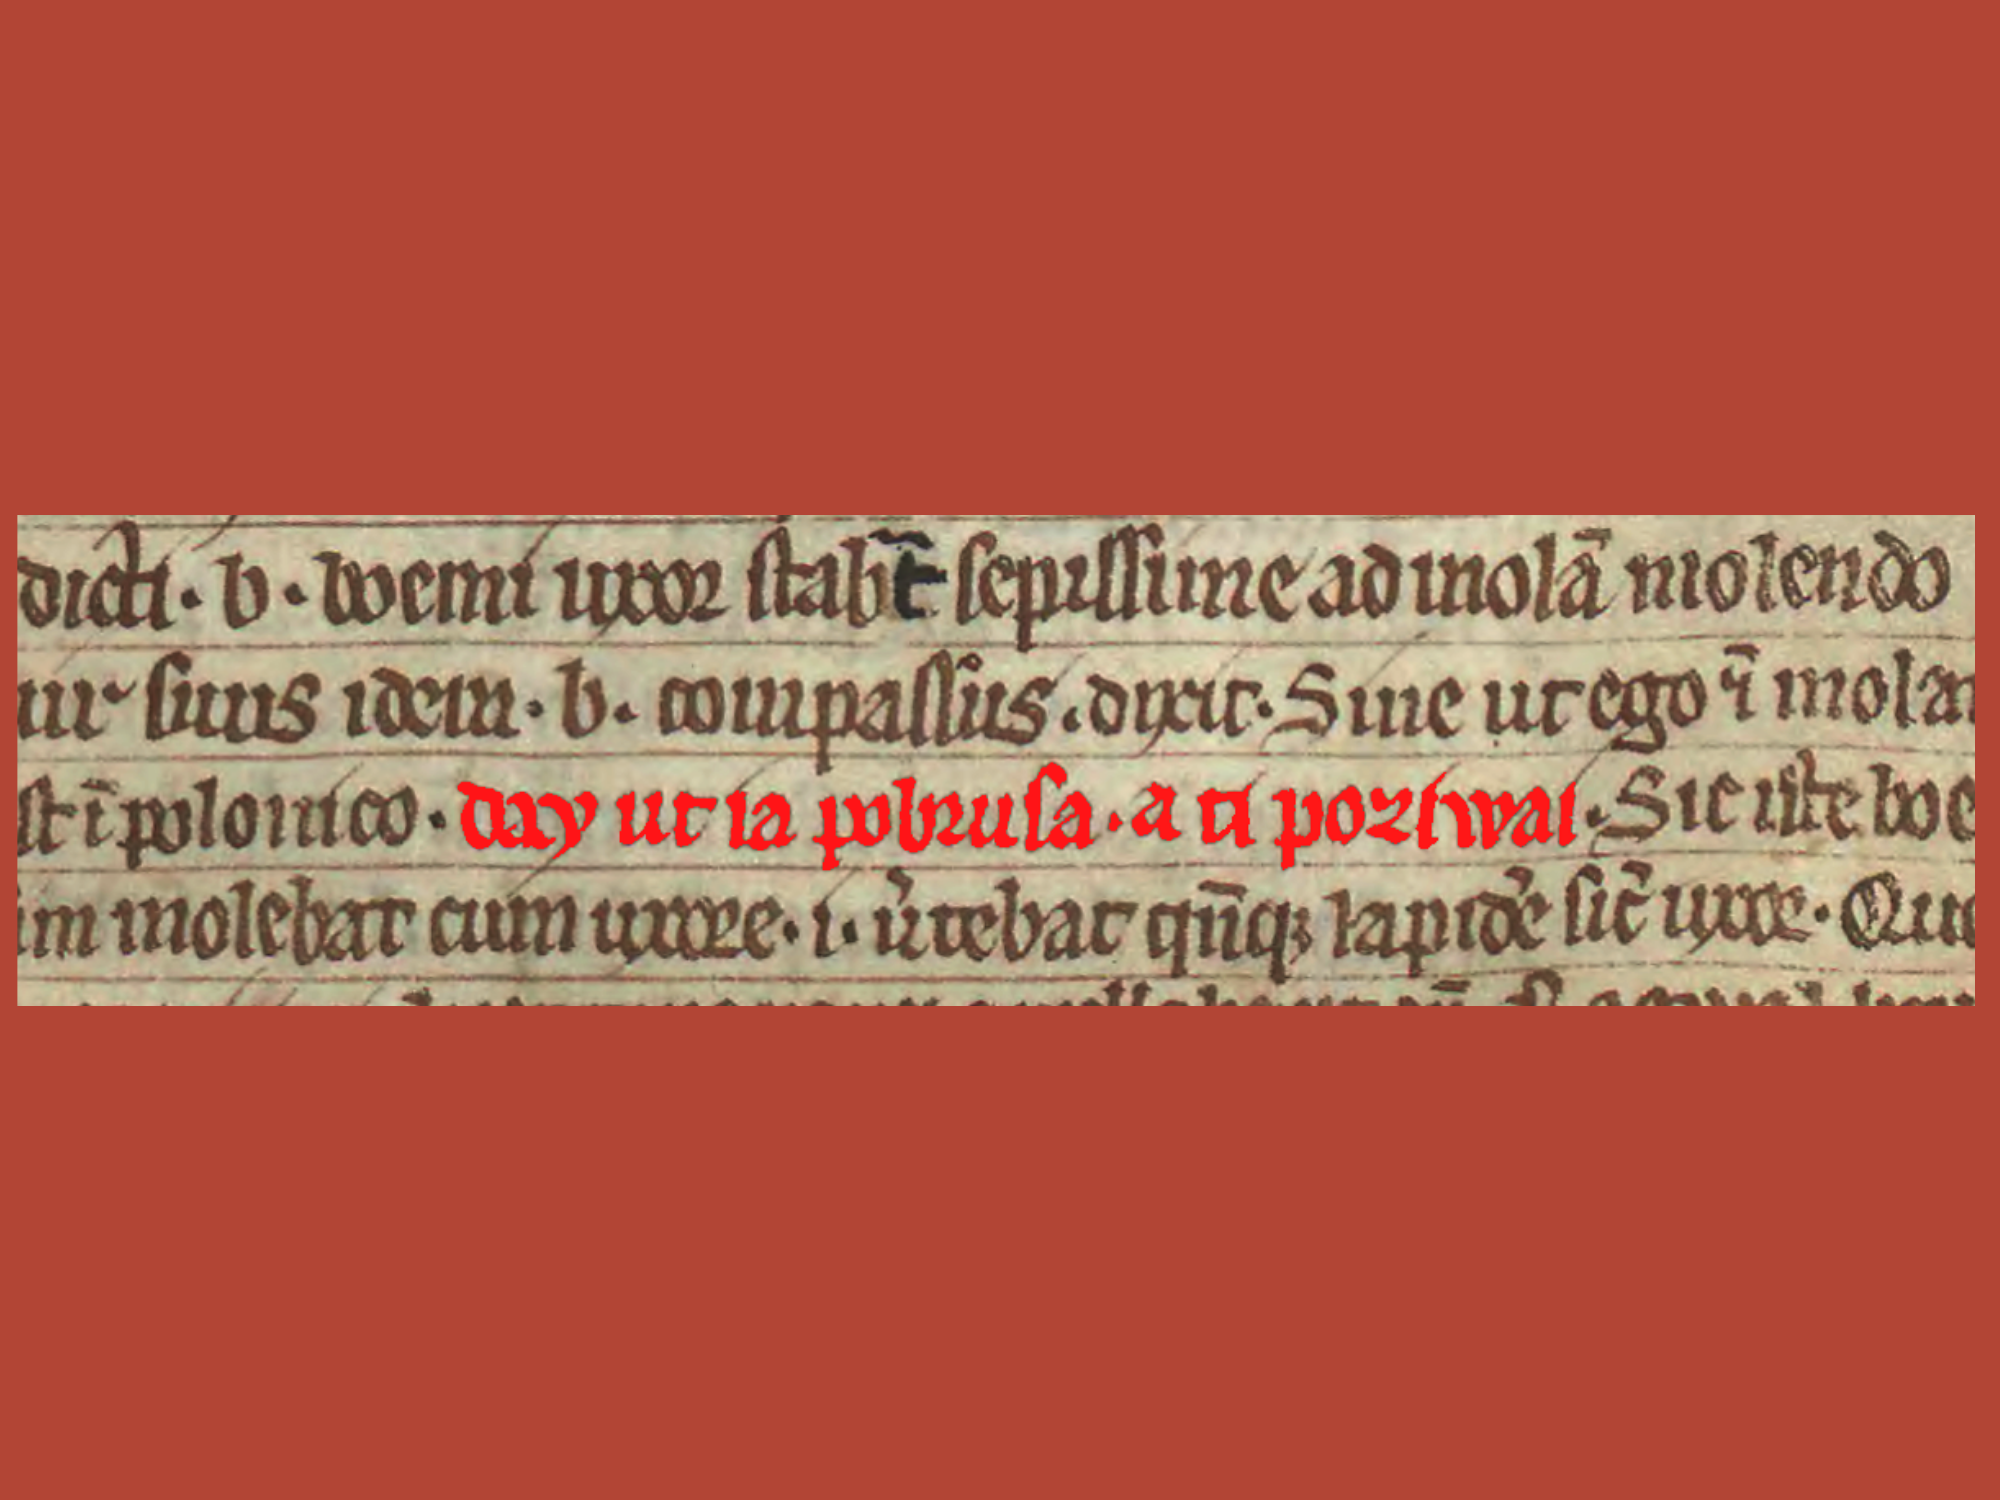 dicti · b · boemi uxor ſtabat̄ ſepiſſime ad molā molendo
ur ſuus idem · b · compaſſus · dixit · Sine ut ego ⁊̄ molam
ſt ī polonico · day ut ia pobruſa · a ti poziwai · Sic iſte boe
im molebat cum uxore · i · v̓tebat qn̄q; lapidē ſic̄ uxore · Quo